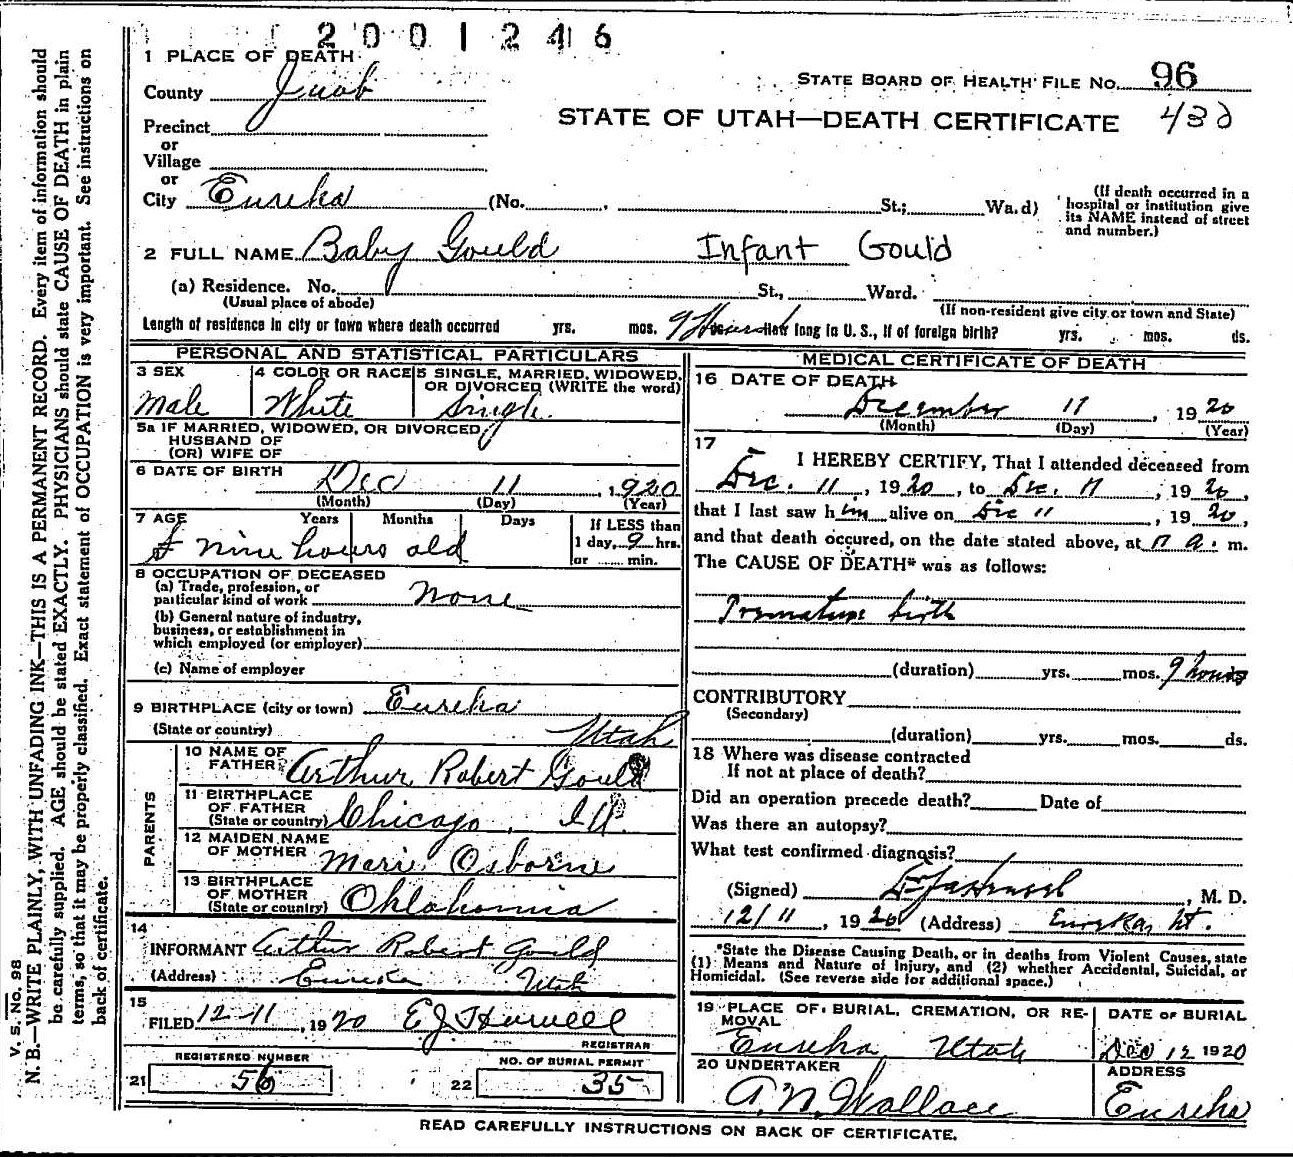 2001246
1 PLACE OF DEATH
STATE BOARD OF HEALTH FILE No. 96
County Juab
STATE OF UTAH—DEATH CERTIFICATE 432
Precinct
or
Village
or
City Eureka (No. , St.; Wa.d)
(If death occurred in a hospital or institution give its NAME instead of street and number.)
2 FULL NAME Baby Gould Infant Gould
(a) Residence. No. St., Ward.
(Usual place of abode) (If non-resident give city or town and State)
Length of residence in city or town where death occurred yrs. mos. 9 Hours How long in U. S., if of foreign birth? yrs. mos. ds.
PERSONAL AND STATISTICAL PARTICULARS
3 SEX Male
4 COLOR OR RACE White
5 SINGLE, MARRIED, WIDOWED, OR DIVORCED (WRITE the word) Single
5a IF MARRIED, WIDOWED, OR DIVORCED
HUSBAND OF
(OR) WIFE OF
6 DATE OF BIRTH Dec 11, 1920
(Month) (Day) (Year)
7 AGE Years Months Days
nine hours old
If LESS than
1 day, 9 hrs.
or ...... min.
8 OCCUPATION OF DECEASED
(a) Trade, profession, or
particular kind of work none
(b) General nature of industry,
business, or establishment in
which employed (or employer)
(c) Name of employer
9 BIRTHPLACE (city or town) Eureka
(State or country) Utah
PARENTS
10 NAME OF
FATHER Arthur Robert Gould
11 BIRTHPLACE
OF FATHER
(State or country) Chicago, Ill.
12 MAIDEN NAME
OF MOTHER Marie Osborne
13 BIRTHPLACE
OF MOTHER
(State or country) Oklahomia
14
INFORMANT Arthur Robert Gould
(Address) Eureka Utah
15
FILED 12-11, 1920 E J Howell
REGISTRAR
REGISTERED NUMBER
21 56
NO. OF BURIAL PERMIT
22 35
MEDICAL CERTIFICATE OF DEATH
16 DATE OF DEATH
December 11, 1920
(Month) (Day) (Year)
17
I HEREBY CERTIFY, That I attended deceased from
Dec. 11, 1920, to Dec. 11, 1920,
that I last saw him alive on Dec 11, 1920,
and that death occured, on the date stated above, at 11 a. m.
The CAUSE OF DEATH* was as follows:
Premature birth
(duration) yrs. mos. 9 hours
CONTRIBUTORY
(Secondary)
(duration) yrs. mos. ds.
18 Where was disease contracted
If not at place of death?
Did an operation precede death? Date of
Was there an autopsy?
What test confirmed diagnosis?
(Signed) , M. D.
12/11, 1920 (Address) Eureka, Ut.
*State the Disease Causing Death, or in deaths from Violent Causes, state
(1) Means and Nature of Injury, and (2) whether Accidental, Suicidal, or
Homicidal. (See reverse side for additional space.)
19 PLACE OF BURIAL, CREMATION, OR RE-
MOVAL
Eureka Utah
DATE OF BURIAL
Dec 12 1920
20 UNDERTAKER
A. N. Wallace
ADDRESS
Eureka
READ CAREFULLY INSTRUCTIONS ON BACK OF CERTIFICATE.
V. S. No. 98
N. B.—WRITE PLAINLY, WITH UNFADING INK—THIS IS A PERMANENT RECORD. Every item of information should
be carefully supplied. AGE should be stated EXACTLY. PHYSICIANS should state CAUSE OF DEATH in plain
terms, so that it may be properly classified. Exact statement of OCCUPATION is very important. See instructions on
back of certificate.